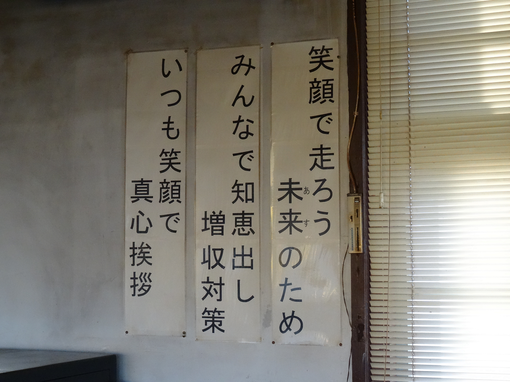 笑顔で走ろう
未来のため
あす
みんなで知恵出し
増収対策
いつも笑顔で
真心挨拶